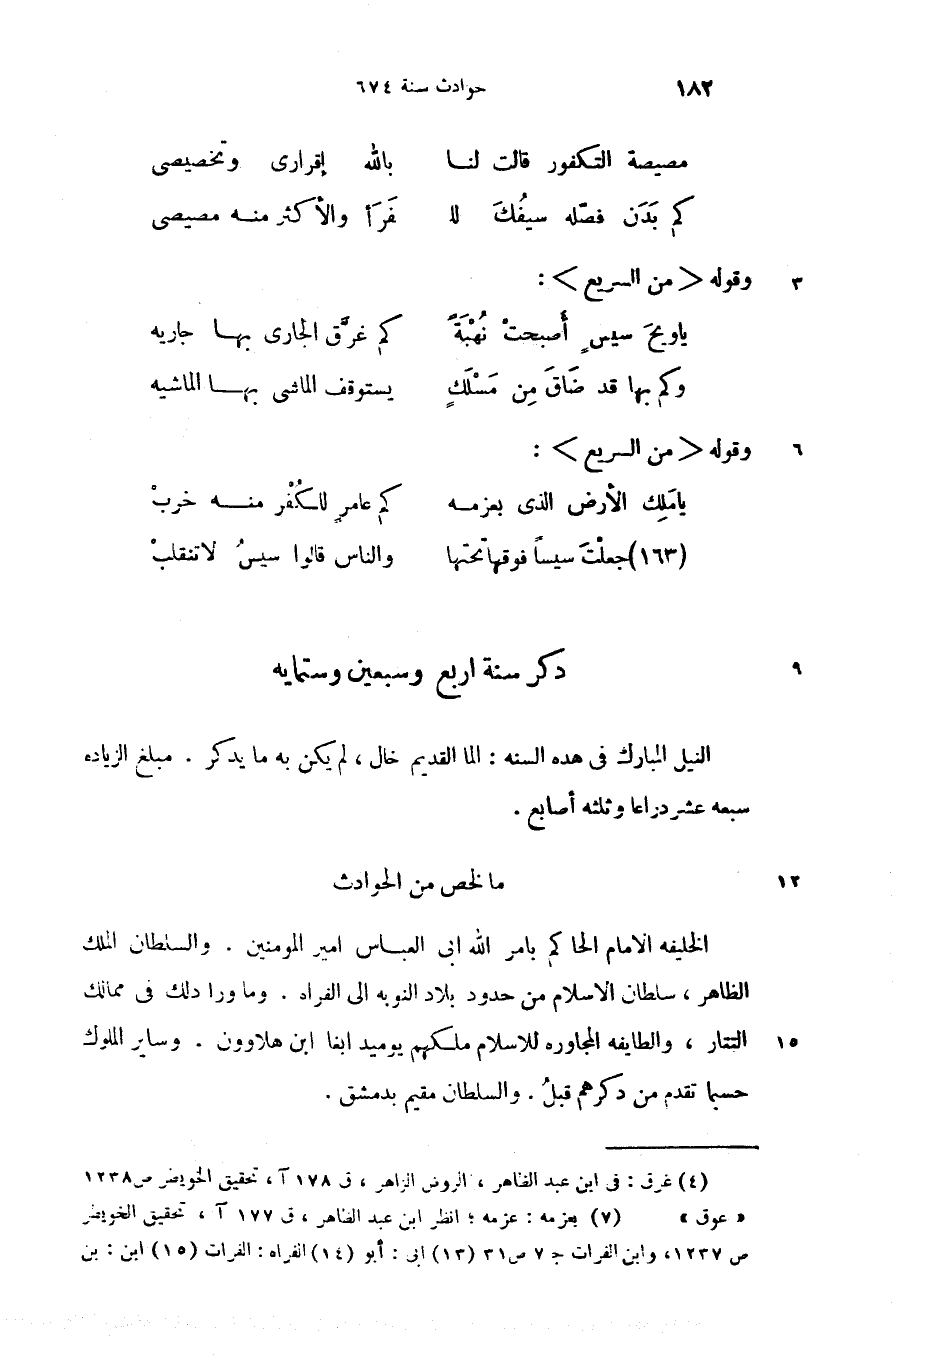 ١٨٢ حوادث سنة ٦٧٤
مصيصة التكفور قالت لنا بالله إقرارى وتخصيصى
كم بَدَن فصّله سيفُكَ لل فَرَأ والأكثر منه مصيصى
٣ وقوله < من السريع > :
ياويحَ سيسٍ أَصبحتْ نُهْبَةً كم غرَّق الجارى بها جاريه
وكم بها قد ضَاقَ مِن مَسْلَكٍ يستوقف الماشى بها الماشيه
٦ وقوله < من السريع > :
يامَلِك الأرض الذى بعزمه كم عامرٍ للكُفْر منه خربْ
(١٦٣) جعلْتَ سيساً فوقها تحتها والناس قالوا سيسُ لاتنقلبْ
٩ دكر سنة اربع وسبعين وستمايه
النيل المبارك فى هده السنه : الما القديم خال ، لم يكن به ما يدكر . مبلغ الزياده
سبعه عشر دراعا وثلثه أصابع .
١٢ مالخص من الحوادث
الخليفه الامام الحاكم بامر الله ابى العباس امير المومنين . والسلطان الملك
الظاهر ، سلطان الاسلام من حدود بلاد النوبه الى الفراه . وما ورا دلك فى ممالك
١٥ التتار ، والطايفه المجاوره للاسلام ملكهم يوميد ابغا ابن هلاوون . وساير الملوك
حسبما تقدم من دكرهم قبلُ . والسلطان مقيم بدمشق .
(٤) غرق : فى ابن عبد الظاهر ، الروض الزاهر ، ق ١٧٨ آ ، تحقيق الخويطر ص ١٢٣٨
« عوق » (٧) بعزمه : عزمه ؛ انظر ابن عبد الظاهر ، ق ١٧٧ آ ، تحقيق الخويطر
ص ١٢٣٧ ، وابن الفرات ج ٧ ص ٣١ (١٣) ابى : أبو (١٤) الفراه : الفرات (١٥) ابن : بن